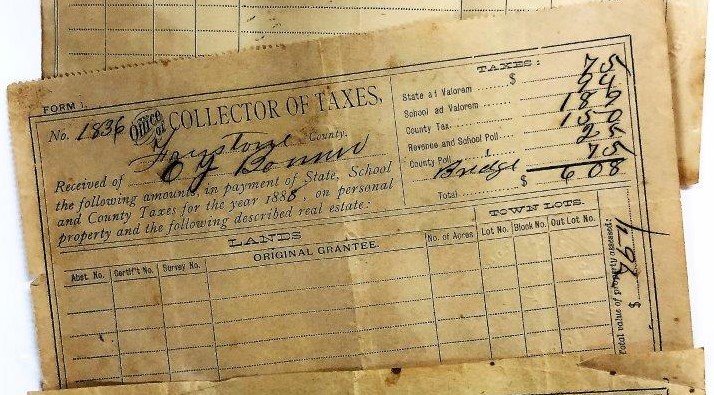 FORM 1.
No. 1836 Office of COLLECTOR OF TAXES,
Freestone County.
Received of Bonner
the following amounts in payment of State, School
and County Taxes for the year 1888, on personal
property and the following described real estate:
TAXES:
State ad Valorem $ 75
School ad Valorem 94
County Tax 189
Revenue and School Poll 150
County Poll 25
Bridge 75
Total $ 608
LANDS
TOWN LOTS.
Abst. No. Certif't No. Survey No. ORIGINAL GRANTEE. No. of Acres Lot No. Block No. Out Lot No.
Total value of property assessed:
$